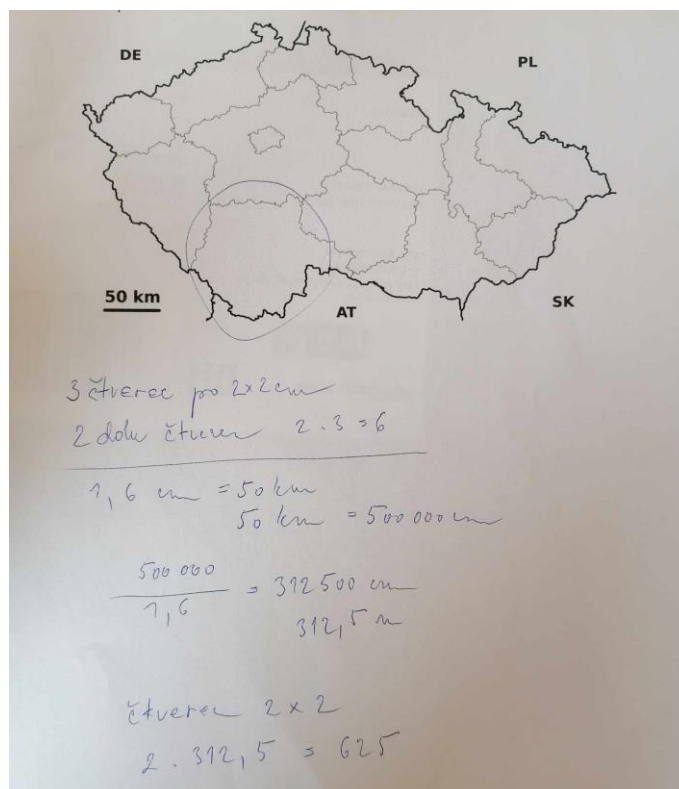 DE
PL
50 km
AT
SK
3 čtverec po 2x2 cm
2 dolu čtverec 2 . 3 = 6
1,6 cm = 50 km
50 km = 500 000 cm
500 000
1,6
= 312 500 cm
312,5 m
čtverec 2 x 2
2 . 312,5 = 625